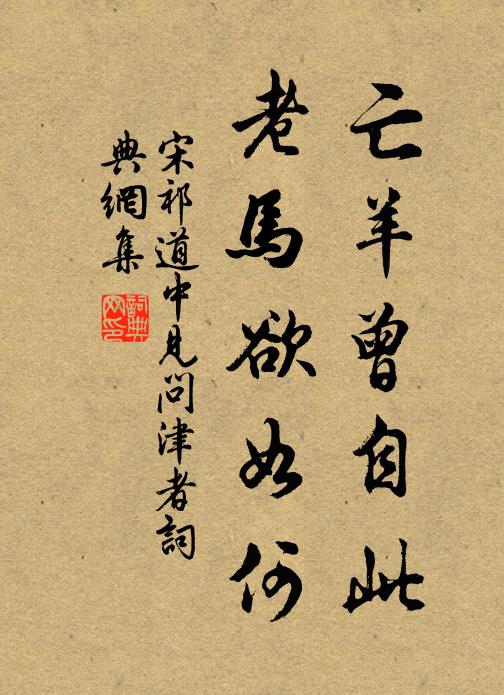 亡羊曾自此
老馬欲如何
宋祁道中見問津者詞
典網集
詞典網印